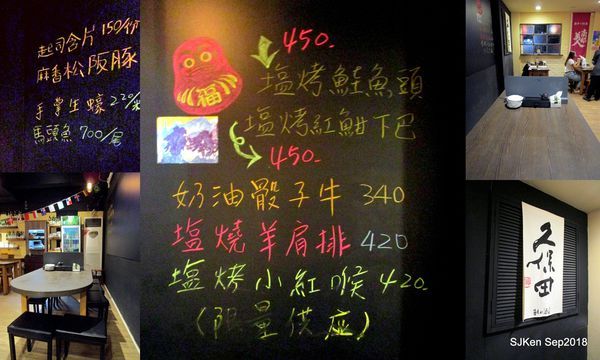 起司合片 150/份
麻香松阪豚
手掌生蠔 220/
馬頭魚 700/尾
450.
福
塩烤鮭魚頭
塩烤紅魽下巴
450.
奶油骰子牛 340
塩燒羊肩排 420
塩烤小紅喉 420.
(限量供應)
久保田
SJKen Sep2018